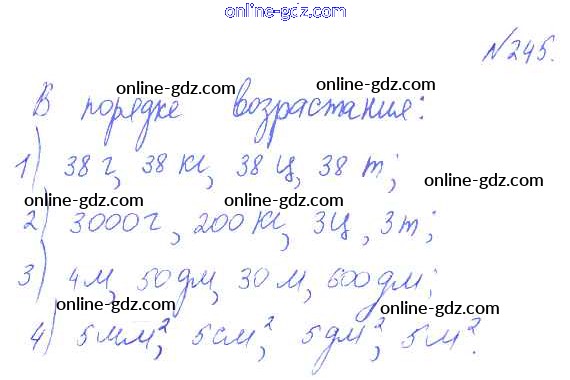 online-gdz.com
№245.
online-gdz.com online-gdz.com
В порядке возрастания:
1) 38 г, 38 кг, 38 ц, 38 т;
online-gdz.com
online-gdz.com online-gdz.com
2) 3000 г, 200 кг, 3ц, 3т;
3) 4м, 50дм, 30м, 600дм;
online-gdz.com online-gdz.com
4) 5мм², 5см², 5дм², 5м².